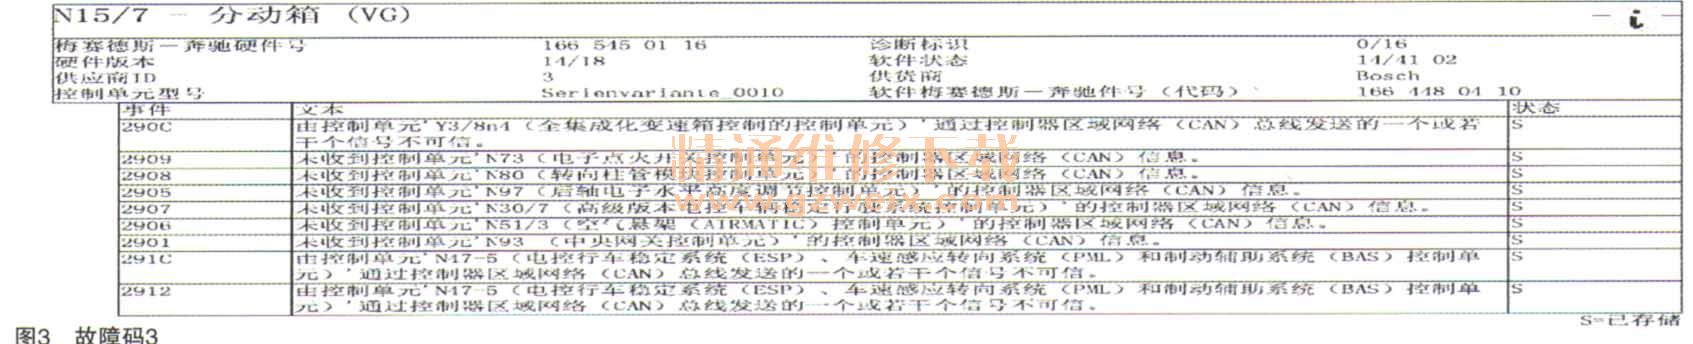 N15/7 - 分动箱 (VG)
梅赛德斯-奔驰硬件号 166 545 01 16 诊断标识 0/16
硬件版本 14/18 软件状态 14/41 02
供应商ID 3 供货商 Bosch
控制单元型号 Serienvariante_0010 软件梅赛德斯-奔驰件号 (代码) 166 448 04 10
事件 文本 状态
290C 由控制单元'Y3/8n4 (全集成化变速箱控制的控制单元)'通过控制器区域网络 (CAN) 总线发送的一个或若 S
干个信号不可信。
2909 未收到控制单元'N73 (电子点火开关控制单元)'的控制器区域网络 (CAN) 信息。 S
2908 未收到控制单元'N80 (转向柱管模块控制单元)'的控制器区域网络 (CAN) 信息。 S
2905 未收到控制单元'N97 (后轴电子水平高度调节控制单元)'的控制器区域网络 (CAN) 信息。 S
2907 未收到控制单元'N30/7 (高级版本电控车辆稳定行驶系统控制单元)'的控制器区域网络 (CAN) 信息。 S
2906 未收到控制单元'N51/3 (空气悬架 (AIRMATIC) 控制单元)'的控制器区域网络 (CAN) 信息。 S
2901 未收到控制单元'N93 (中央网关控制单元)'的控制器区域网络 (CAN) 信息。 S
291C 由控制单元'N47-5 (电控行车稳定系统 (ESP)、车速感应转向系统 (PML) 和制动辅助系统 (BAS) 控制单 S
元)'通过控制器区域网络 (CAN) 总线发送的一个或若干个信号不可信。
2912 由控制单元'N47-5 (电控行车稳定系统 (ESP)、车速感应转向系统 (PML) 和制动辅助系统 (BAS) 控制单 S
元)'通过控制器区域网络 (CAN) 总线发送的一个或若干个信号不可信。
S=已存储
精通维修下载
www.gzweix.com
图3 故障码3